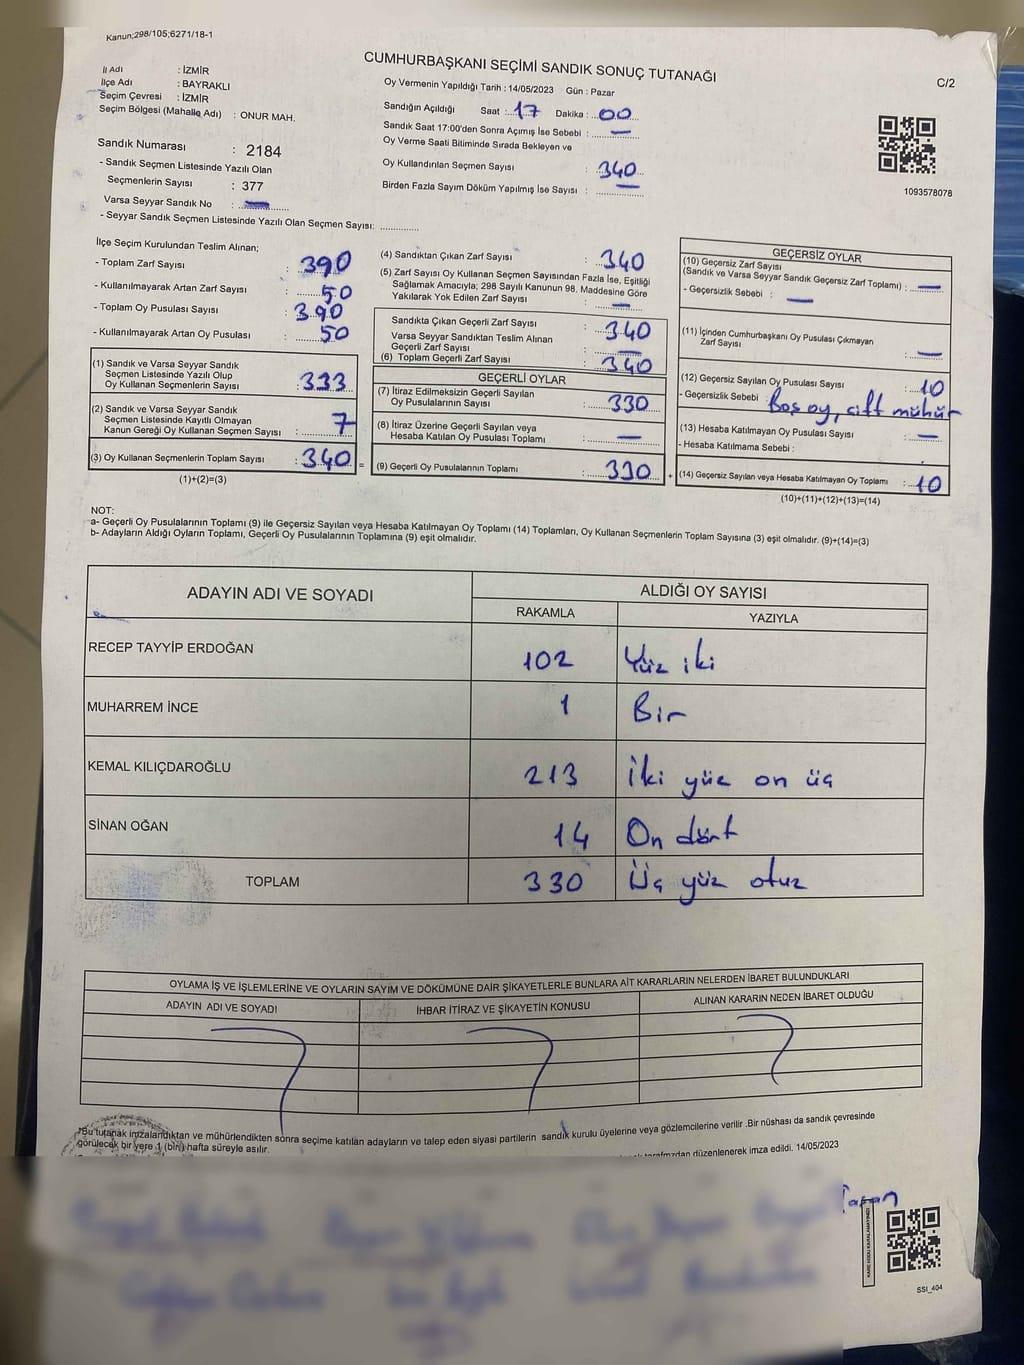 Kanun;298/105;6271/18-1
CUMHURBAŞKANI SEÇİMİ SANDIK SONUÇ TUTANAĞI
C/2
İl Adı : İZMİR
İlçe Adı : BAYRAKLI
Seçim Çevresi : İZMİR
Seçim Bölgesi (Mahalle Adı) : ONUR MAH.
Sandık Numarası : 2184
- Sandık Seçmen Listesinde Yazılı Olan
Seçmenlerin Sayısı : 377
Varsa Seyyar Sandık No : —
- Seyyar Sandık Seçmen Listesinde Yazılı Olan Seçmen Sayısı: ..............
Oy Vermenin Yapıldığı Tarih : 14/05/2023 Gün : Pazar
Sandığın Açıldığı Saat : 17 Dakika : 00
Sandık Saat 17:00'den Sonra Açımış İse Sebebi : —
Oy Verme Saati Bitiminde Sırada Bekleyen ve
Oy Kullandırılan Seçmen Sayısı : 340
Birden Fazla Sayım Döküm Yapılmış İse Sayısı : —
1093578078
İlçe Seçim Kurulundan Teslim Alınan;
- Toplam Zarf Sayısı : 390
- Kullanılmayarak Artan Zarf Sayısı : 50
- Toplam Oy Pusulası Sayısı : 390
- Kullanılmayarak Artan Oy Pusulası : 50
(1) Sandık ve Varsa Seyyar Sandık
Seçmen Listesinde Yazılı Olup
Oy Kullanan Seçmenlerin Sayısı : 333
(2) Sandık ve Varsa Seyyar Sandık
Seçmen Listesinde Kayıtlı Olmayan
Kanun Gereği Oy Kullanan Seçmen Sayısı : 7
(3) Oy Kullanan Seçmenlerin Toplam Sayısı : 340 =
(1)+(2)=(3)
(4) Sandıktan Çıkan Zarf Sayısı : 340
(5) Zarf Sayısı Oy Kullanan Seçmen Sayısından Fazla İse, Eşitliği
Sağlamak Amacıyla; 298 Sayılı Kanunun 98. Maddesine Göre
Yakılarak Yok Edilen Zarf Sayısı : —
Sandıkta Çıkan Geçerli Zarf Sayısı : 340
Varsa Seyyar Sandıktan Teslim Alınan
Geçerli Zarf Sayısı : —
(6) Toplam Geçerli Zarf Sayısı : 340
GEÇERLİ OYLAR
(7) İtiraz Edilmeksizin Geçerli Sayılan
Oy Pusulalarının Sayısı : 330
(8) İtiraz Üzerine Geçerli Sayılan veya
Hesaba Katılan Oy Pusulası Toplamı : —
(9) Geçerli Oy Pusulalarının Toplamı : 330 +
GEÇERSİZ OYLAR
(10) Geçersiz Zarf Sayısı
(Sandık ve Varsa Seyyar Sandık Geçersiz Zarf Toplamı) : —
- Geçersizlik Sebebi : —
(11) İçinden Cumhurbaşkanı Oy Pusulası Çıkmayan
Zarf Sayısı : —
(12) Geçersiz Sayılan Oy Pusulası Sayısı : 10
- Geçersizlik Sebebi : Boş oy, çift mühür
(13) Hesaba Katılmayan Oy Pusulası Sayısı : —
- Hesaba Katılmama Sebebi :
(14) Geçersiz Sayılan veya Hesaba Katılmayan Oy Toplamı : 10
(10)+(11)+(12)+(13)=(14)
NOT:
a- Geçerli Oy Pusulalarının Toplamı (9) ile Geçersiz Sayılan veya Hesaba Katılmayan Oy Toplamı (14) Toplamları, Oy Kullanan Seçmenlerin Toplam Sayısına (3) eşit olmalıdır. (9)+(14)=(3)
b- Adayların Aldığı Oyların Toplamı, Geçerli Oy Pusulalarının Toplamına (9) eşit olmalıdır.
ADAYIN ADI VE SOYADI ALDIĞI OY SAYISI
RAKAMLA YAZIYLA
RECEP TAYYİP ERDOĞAN 102 Yüz iki
MUHARREM İNCE 1 Bir
KEMAL KILIÇDAROĞLU 213 İki yüz on üç
SİNAN OĞAN 14 On dört
TOPLAM 330 Üç yüz otuz
OYLAMA İŞ VE İŞLEMLERİNE VE OYLARIN SAYIM VE DÖKÜMÜNE DAİR ŞİKAYETLERLE BUNLARA AİT KARARLARIN NELERDEN İBARET BULUNDUKLARI
ADAYIN ADI VE SOYADI İHBAR İTİRAZ VE ŞİKAYETİN KONUSU ALINAN KARARIN NEDEN İBARET OLDUĞU
*Bu tutanak imzalandıktan ve mühürlendikten sonra seçime katılan adayların ve talep eden siyasi partilerin sandık kurulu üyelerine veya gözlemcilerine verilir .Bir nüshası da sandık çevresinde
görülecek bir yere 1 (bir) hafta süreyle asılır.
tarafımızdan düzenlenerek imza edildi. 14/05/2023
SSI_404